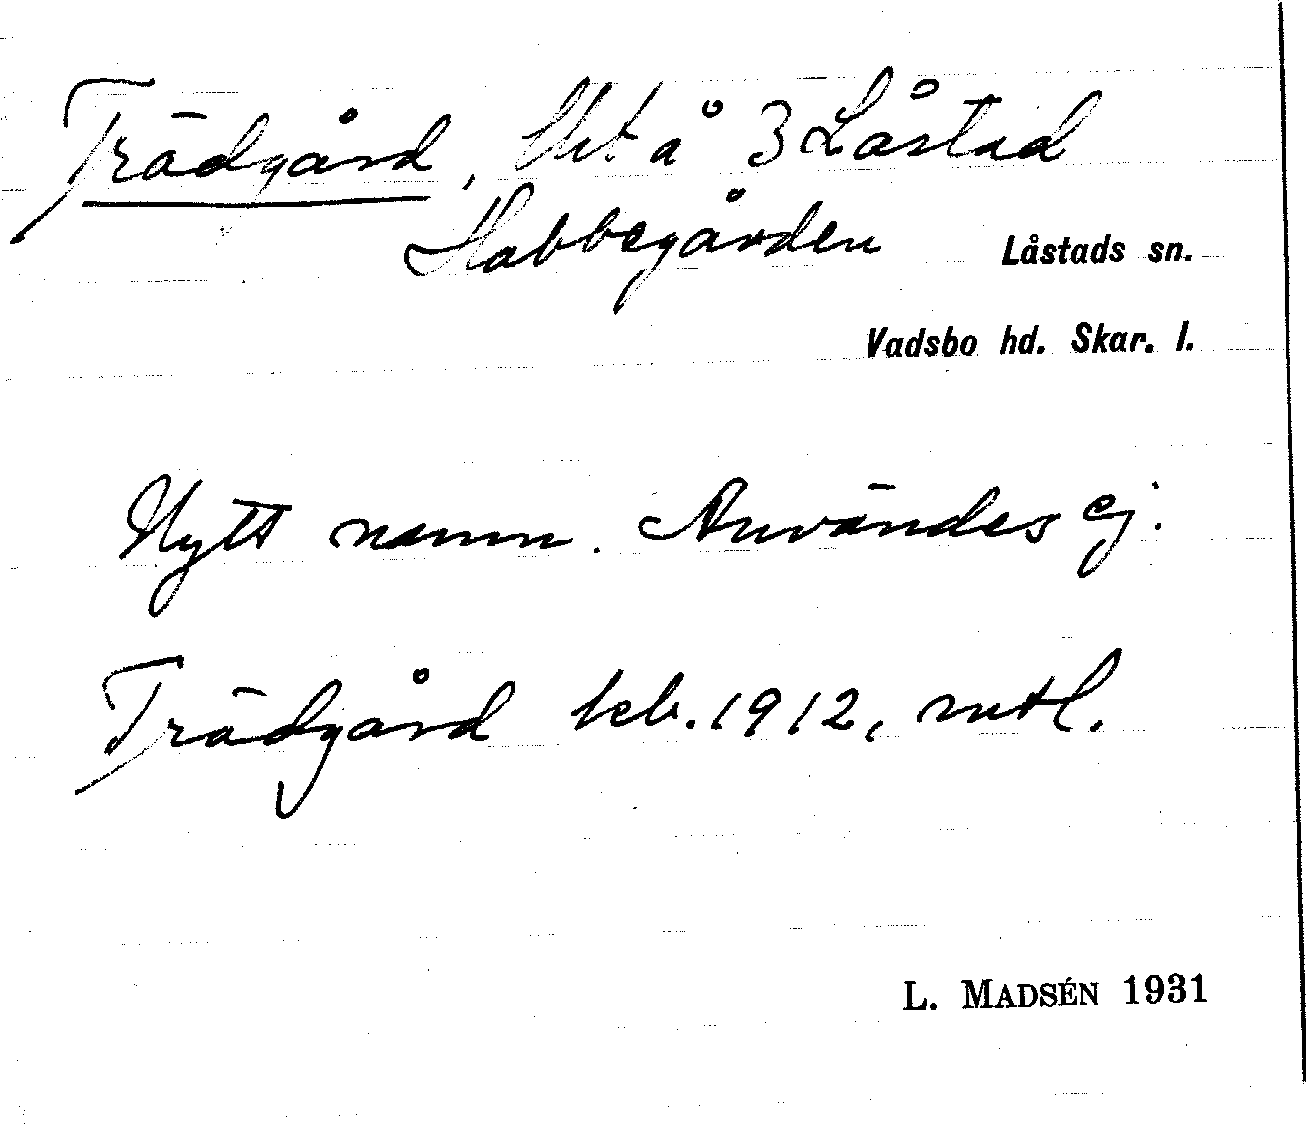 Trädgård, Ut å 3 Låstad
Habbegården
Låstads sn.
Vadsbo hd. Skar. l.
Nytt namn. Användes ej.
Trädgård kb. 1912, mtl.
L. MADSÉN 1931